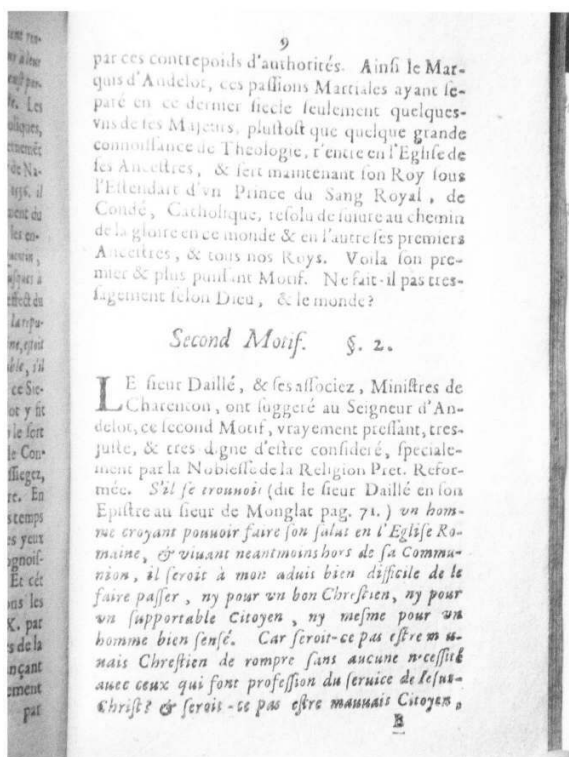 9
par ces contrepoids d'authorités. Ainsi le Mar-
quis d'Andelot, ces passions Martiales ayant se-
paré en ce dernier siecle seulement quelques-
vns de ses Majeurs, plustost que quelque grande
connoissance de Theologie, r'entre en l'Eglise de
ses Ancestres, & sert maintenant son Roy sous
l'Estendart d'vn Prince du Sang Royal, de
Condé, Catholique, resolu de suiure au chemin
de la gloire en ce monde & en l'autre ses premiers
Ancestres, & tous nos Roys. Voila son pre-
mier & plus puissant Motif. Ne fait-il pas tres-
sagement selon Dieu, & le monde?
Second Motif. §. 2.
LE sieur Daillé, & ses associez, Ministres de
Charenton, ont suggeré au Seigneur d'An-
delot, ce second Motif, vrayement pressant, tres-
juste, & tres digne d'estre consideré, speciale-
ment par la Noblesse de la Religion Pret. Refor-
mée. S'il se trouuoit (dit le sieur Daillé en son
Epistre au sieur de Monglat pag. 71.) vn hom-
me croyant pouuoir faire son salut en l'Eglise Ro-
maine, & viuant neantmoins hors de sa Commu-
nion, il seroit à mon aduis bien difficile de le
faire passer, ny pour vn bon Chrestien, ny pour
vn supportable Citoyen, ny mesme pour vn
homme bien sensé. Car seroit-ce pas estre mau-
uais Chrestien de rompre sans aucune necessité
auec ceux qui font profession du seruice de Iesus-
Christ? & seroit-ce pas estre mauuais Citoyen,
B